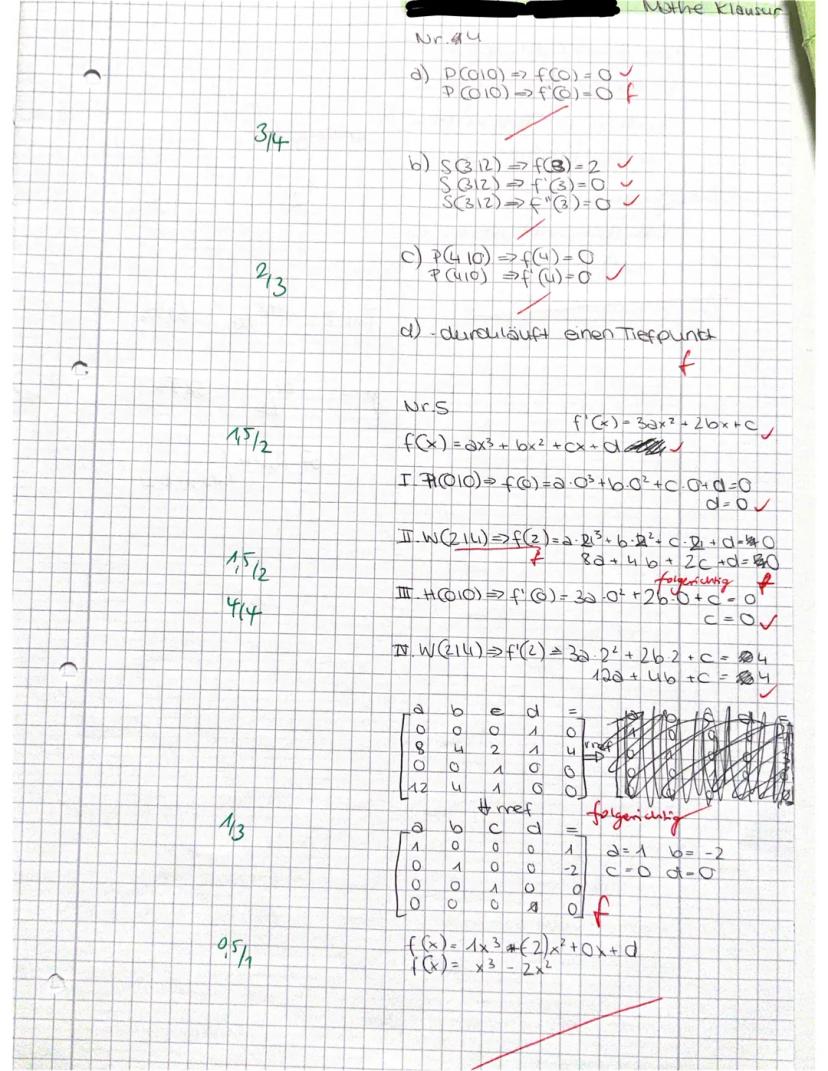 Mathe Klausur
Nr. 4
a) P(0|0) => f(0) = 0 ✓
P(0|0) => f'(0) = 0 f
3/4
b) S(3|2) => f(3) = 2 ✓
S(3|2) => f'(3) = 0 ✓
S(3|2) => f''(3) = 0 ✓
c) P(4|0) => f(4) = 0
P(4|0) => f'(4) = 0 ✓
2/3
d) - durchläuft einen Tiefpunkt
f
Nr. 5
f'(x) = 3ax² + 2bx + c ✓
1,5/2
f(x) = ax³ + bx² + cx + d ✓
I. H(0|0) => f(0) = a·0³ + b·0² + c·0 + d = 0
d = 0 ✓
II. W(2|4) => f(2) = a·2³ + b·2² + c·2 + d = 0
f
8a + 4b + 2c + d = 0
1,5/2
folgerichtig f
III. H(0|0) => f'(0) = 3a·0² + 2b·0 + c = 0
4/4
c = 0 ✓
IV. W(2|4) => f'(2) = 3a·2² + 2b·2 + c = 4
12a + 4b + c = 4
✓
a b c d =
0 0 0 1 0
8 4 2 1 4 rref
0 0 1 0 0
12 4 1 0 0
rref
folgerichtig
1/3
a b c d =
1 0 0 0 1 a = 1 b = -2
0 1 0 0 -2 c = 0 d = 0
0 0 1 0 0
0 0 0 1 0 f
0,5/1
f(x) = 1x³ + (-2)x² + 0x + d
f(x) = x³ - 2x²